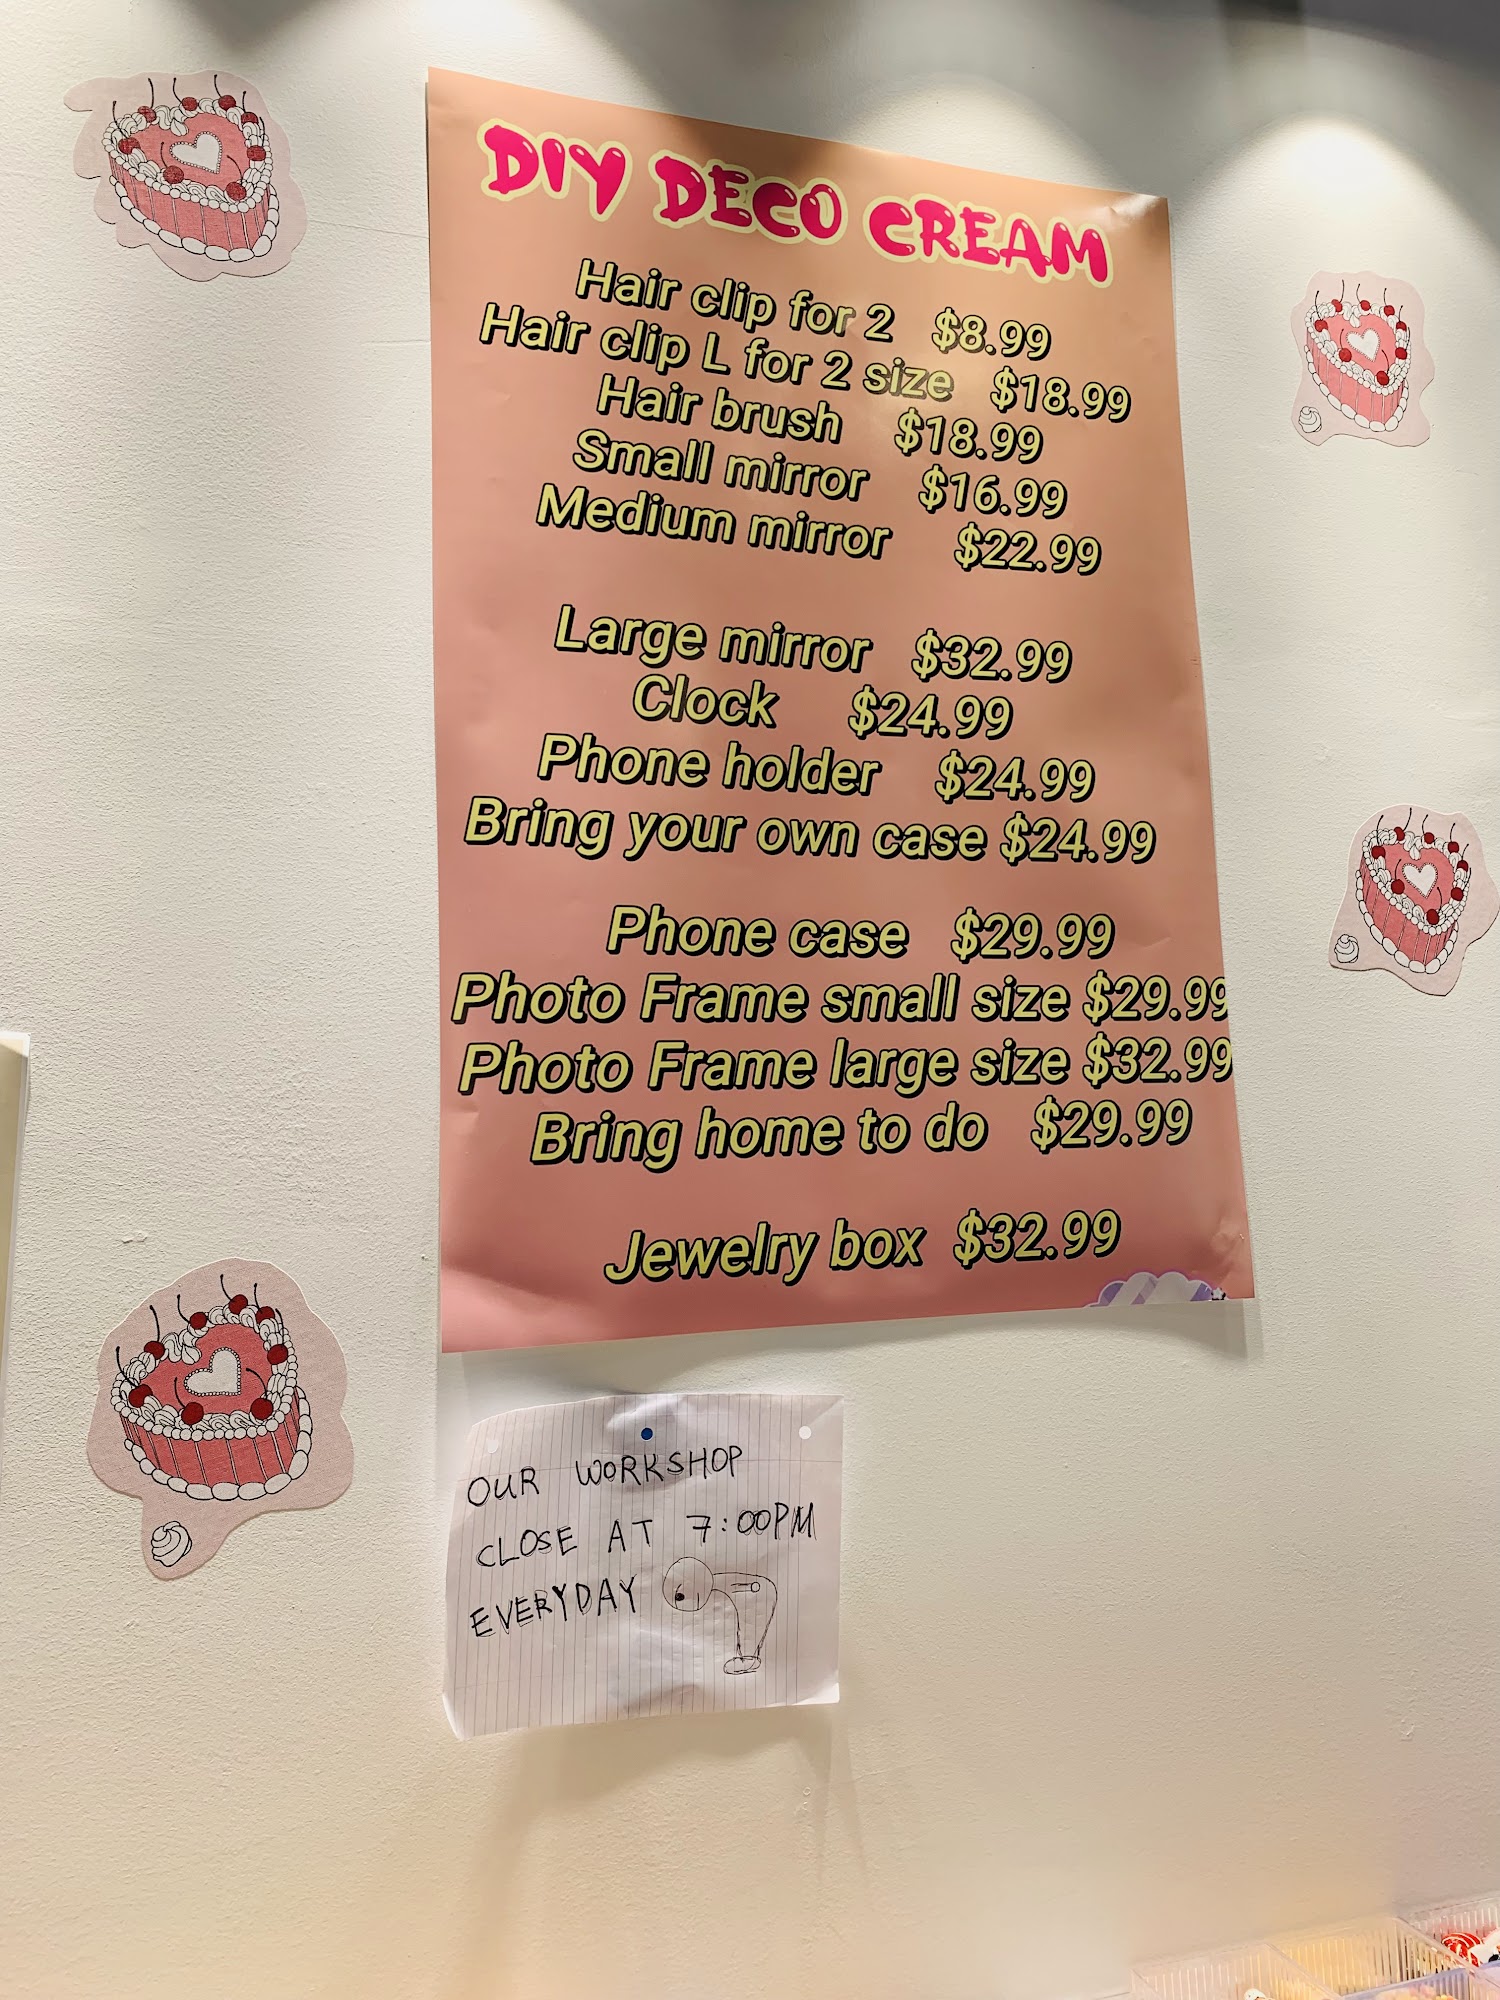 DIY DECO CREAM
Hair clip for 2 $8.99
Hair clip L for 2 size $18.99
Hair brush $18.99
Small mirror $16.99
Medium mirror $22.99
Large mirror $32.99
Clock $24.99
Phone holder $24.99
Bring your own case $24.99
Phone case $29.99
Photo Frame small size $29.99
Photo Frame large size $32.99
Bring home to do $29.99
Jewelry box $32.99
OUR WORKSHOP
CLOSE AT 7:00PM
EVERYDAY